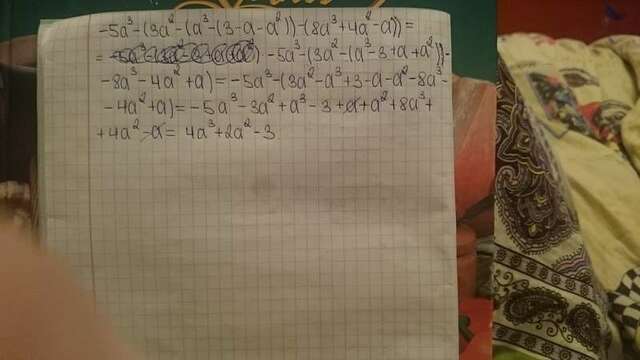 -5a³-(3a²-(a³-(3-a-a²))-(8a³+4a²-a))=
= -5a³-(3a²-(a³-3+a+a²))-
-8a³-4a²+a)=-5a³-(3a²-a³+3-a-a²-8a³-
-4a²+a)=-5a³-3a²+a³-3+a+a²+8a³+
+4a²-a= 4a³+2a²-3